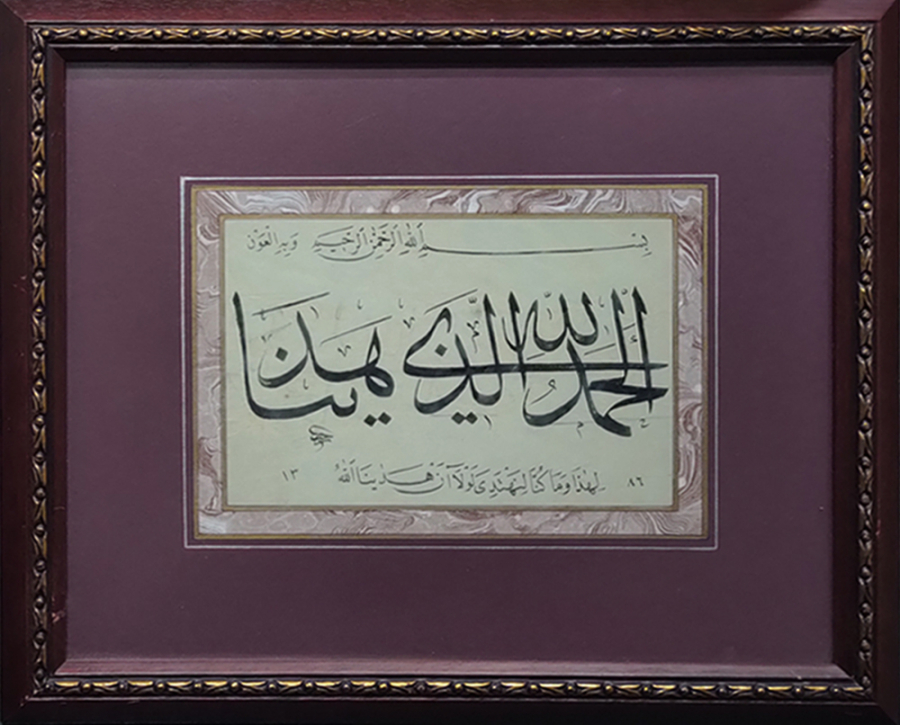 بِسْمِ اللهِ الرَّحْمٰنِ الرَّحِيمِ وَبِهِ الْعَوْنُ
اَلْحَمْدُ لِلّٰهِ الَّذِي هَدٰينَا
٨٦ لِهٰذَا وَمَا كُنَّا لِنَهْتَدِىَ لَوْلَآ اَنْ هَدٰينَا اللهُ ١٣